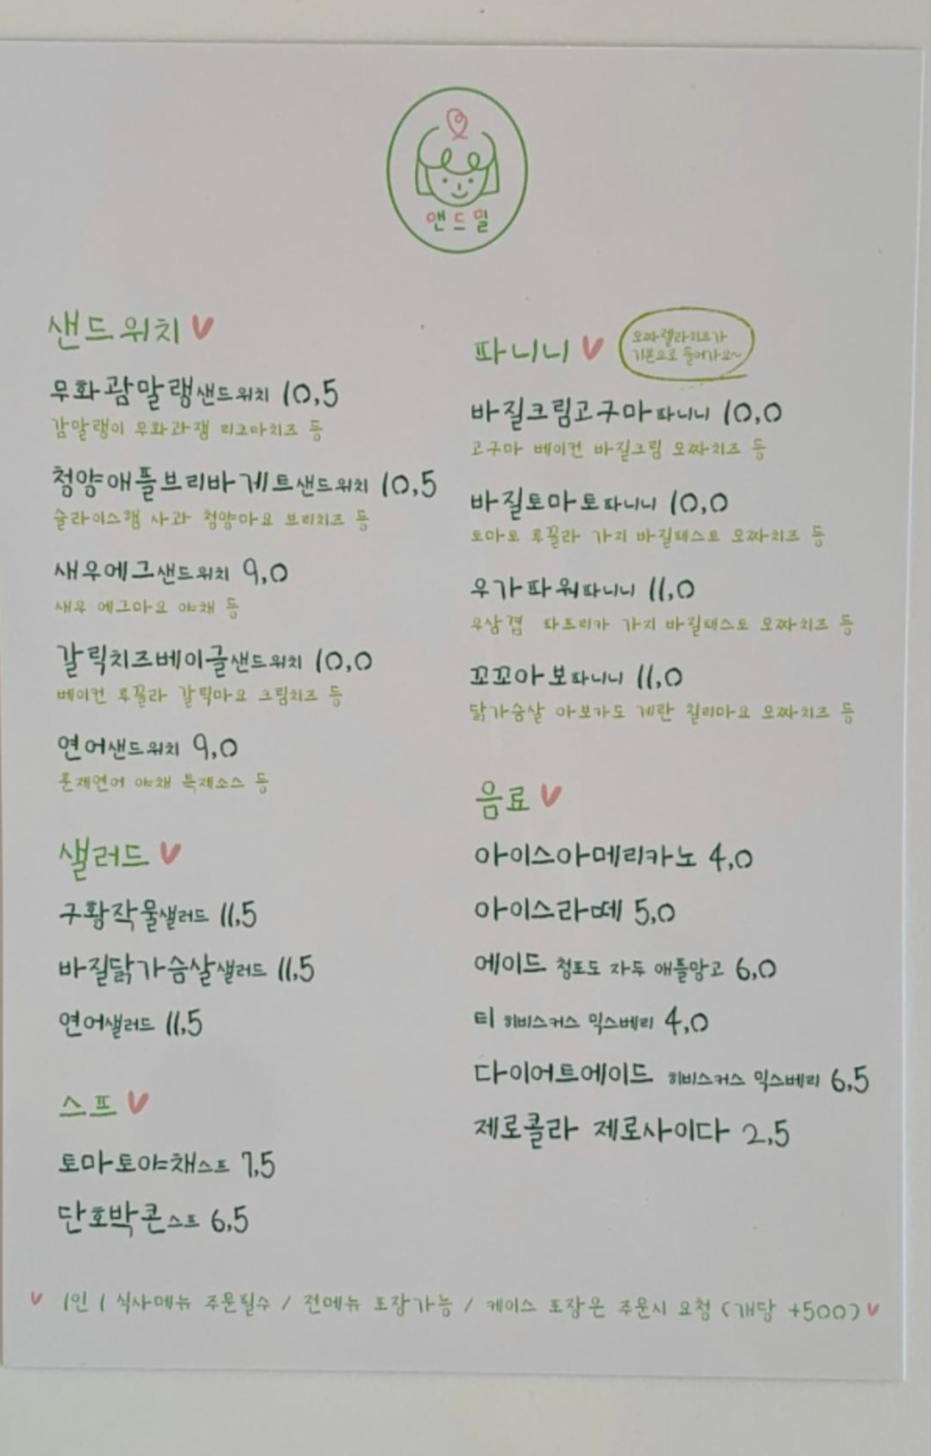 앤드밀
샌드위치
무화깜말랭샌드위치 10,5
감말랭이 무화과잼 리코타치즈 등
청양애플브리바게트샌드위치 10,5
슬라이스햄 사과 청양마요 브리치즈 등
새우에그샌드위치 9,0
새우 에그마요 야채 등
갈릭치즈베이글샌드위치 10,0
베이컨 루꼴라 갈릭마요 크림치즈 등
연어샌드위치 9,0
훈제연어 야채 특제소스 등
샐러드
구황작물샐러드 11,5
바질닭가슴살샐러드 11,5
연어샐러드 11,5
스프
토마토야채스프 7,5
단호박콘스프 6,5
파니니
모짜렐라치즈가
기본으로 들어가요~
바질크림고구마파니니 10,0
고구마 베이컨 바질크림 모짜치즈 등
바질토마토파니니 10,0
토마토 루꼴라 가지 바질페스토 모짜치즈 등
우가파워파니니 11,0
우삼겹 파프리카 가지 바질페스토 모짜치즈 등
꼬꼬아보파니니 11,0
닭가슴살 아보카도 계란 칠리마요 모짜치즈 등
음료
아이스아메리카노 4,0
아이스라떼 5,0
에이드 청포도 자두 애플망고 6,0
티 히비스커스 믹스베리 4,0
다이어트에이드 히비스커스 믹스베리 6,5
제로콜라 제로사이다 2,5
1인 1 식사메뉴 주문필수 / 전메뉴 포장가능 / 케이스 포장은 주문시 요청 (개당 +500)